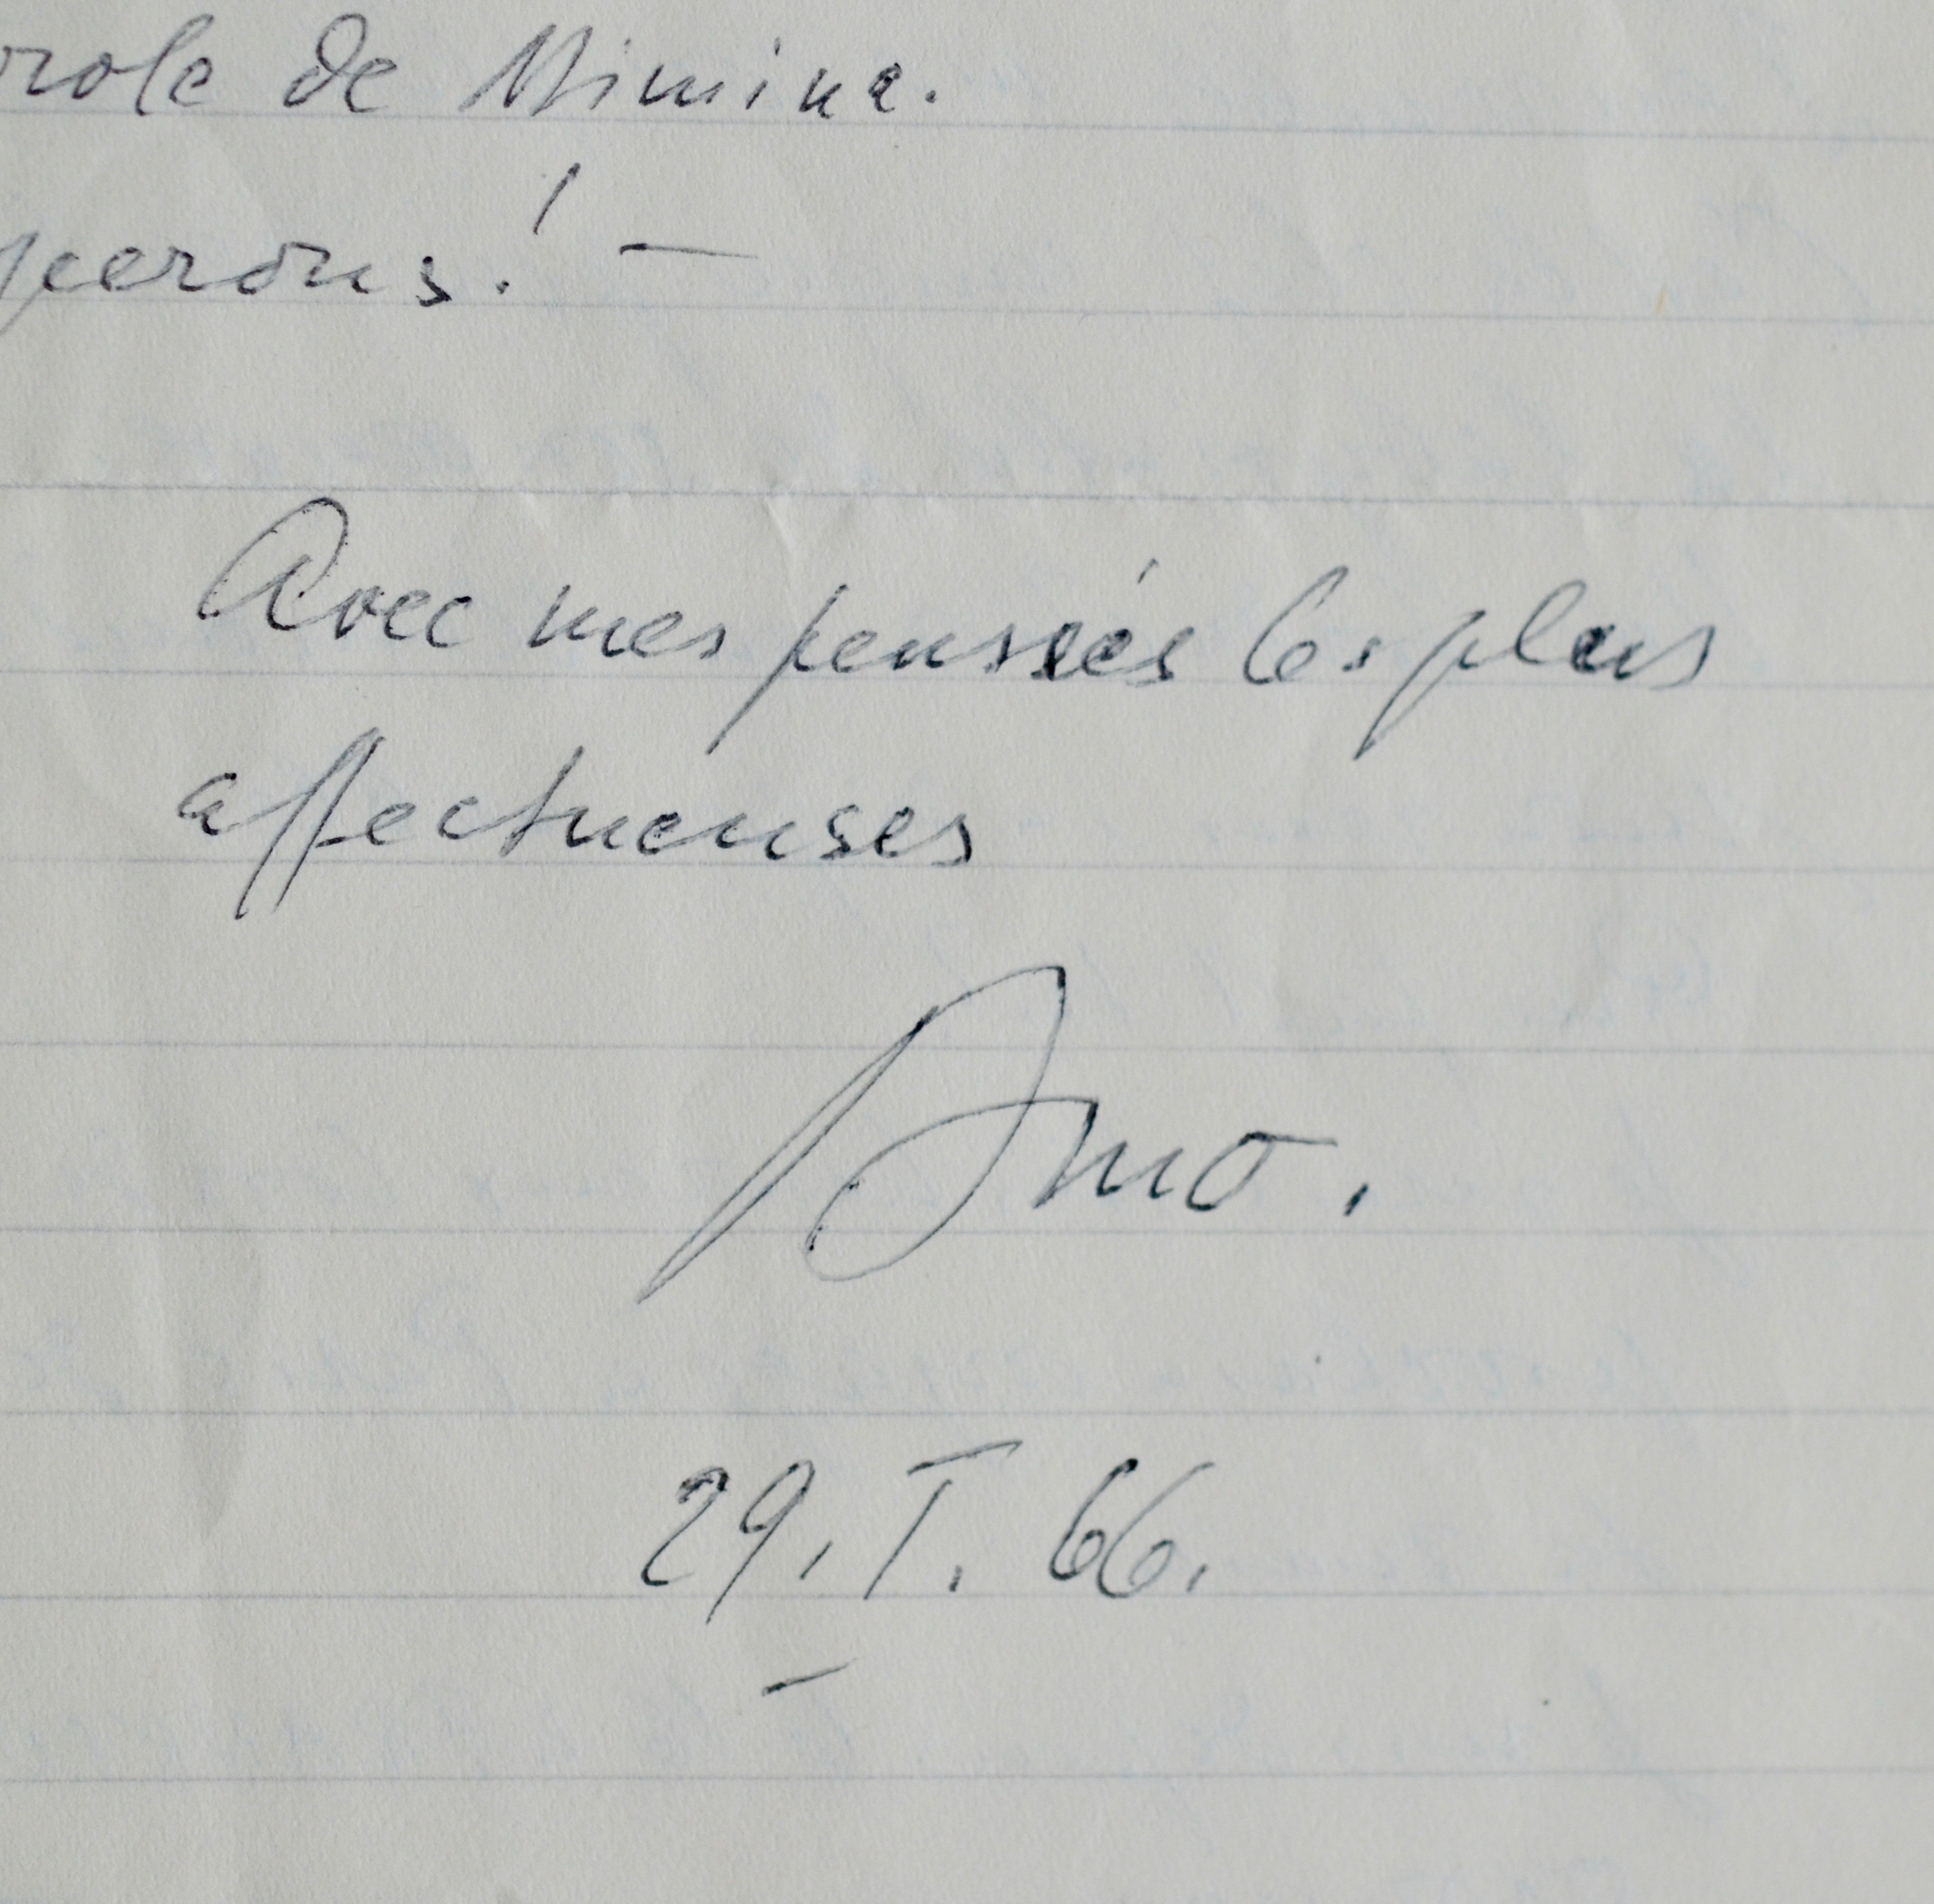 role de Mimina.
perons! —
Avec mes pensées les plus
affectueuses
Amo.
29. I. 66.